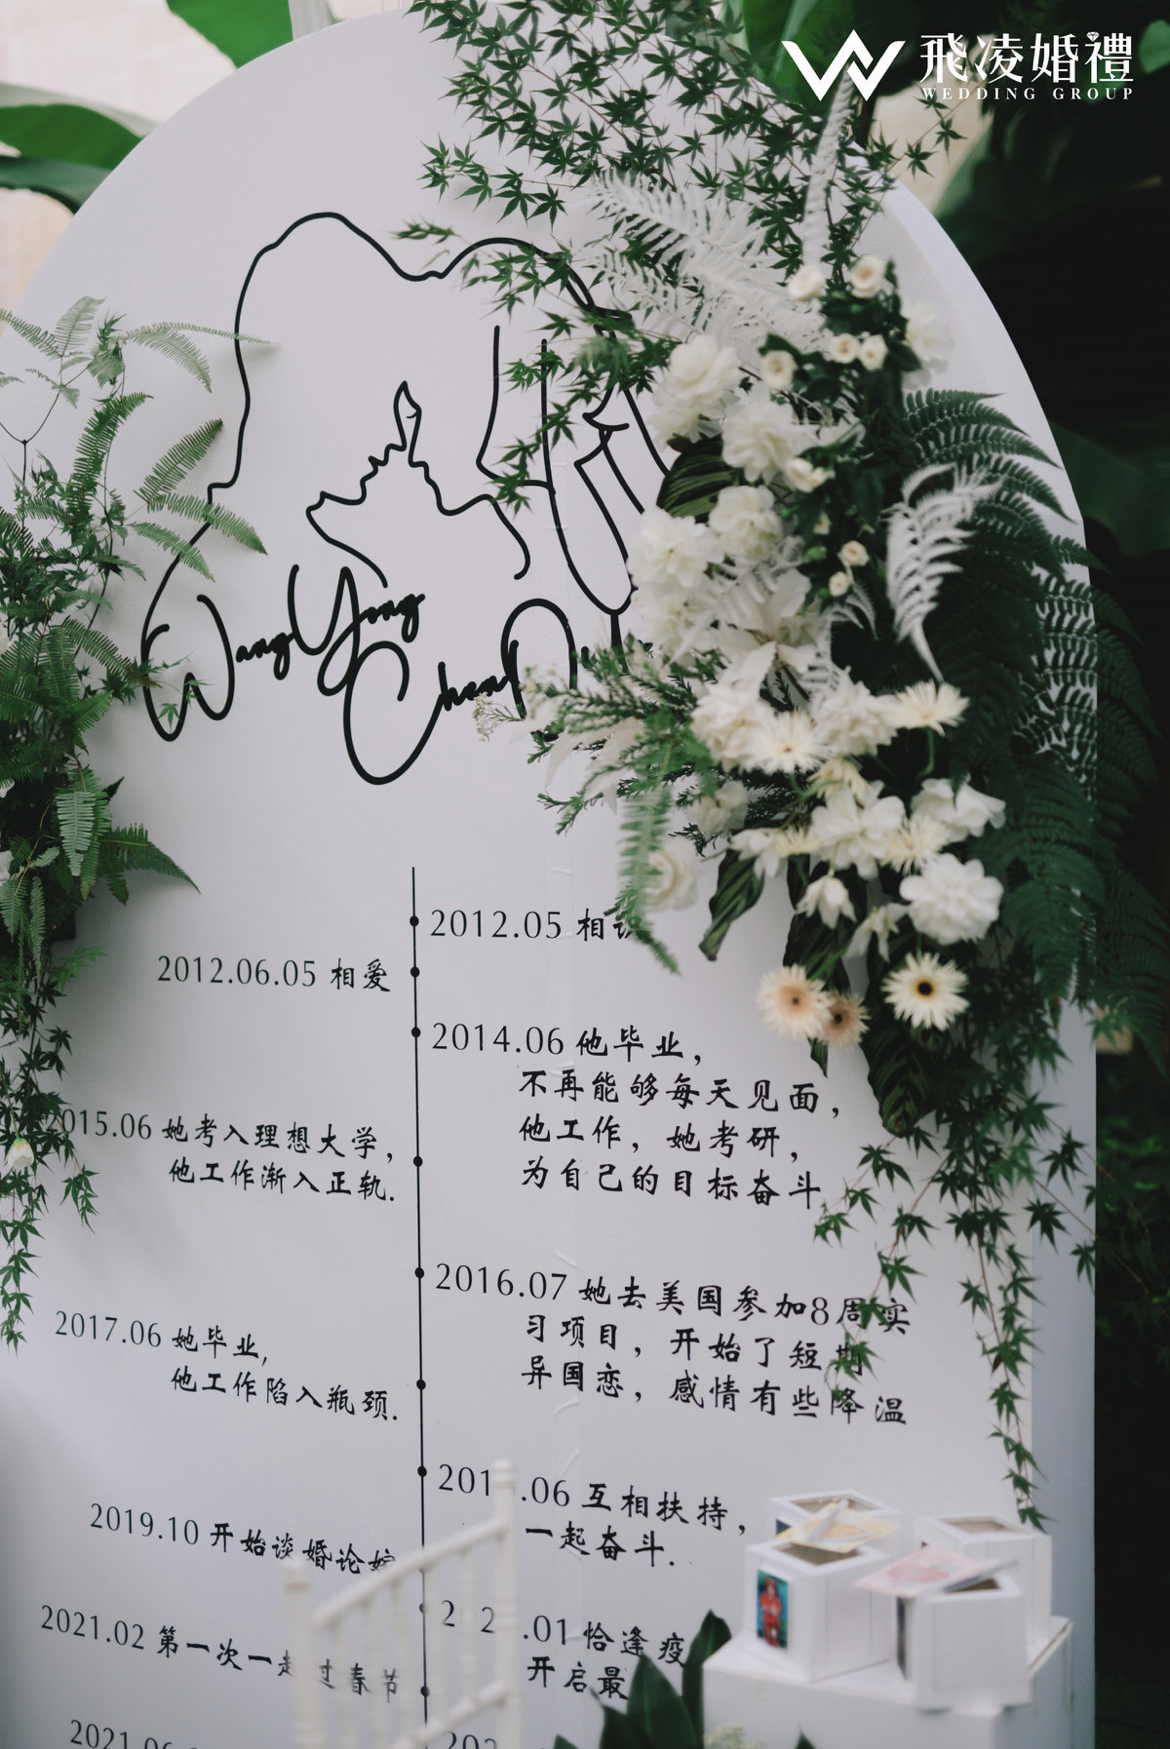 飛凌婚禮
WEDDING GROUP
WangYong
Chen
2012.05 相识
2012.06.05 相爱
2014.06 他毕业，
不再能够每天见面，
他工作，她考研，
为自己的目标奋斗
2015.06 她考入理想大学，
他工作渐入正轨.
2016.07 她去美国参加8周实
习项目，开始了短期
异国恋，感情有些降温
2017.06 她毕业，
他工作陷入瓶颈.
201 .06 互相扶持，
一起奋斗.
2019.10 开始谈婚论嫁
2 2 .01 恰逢疫
开启最
2021.02 第一次一起过春节
2021.0
202